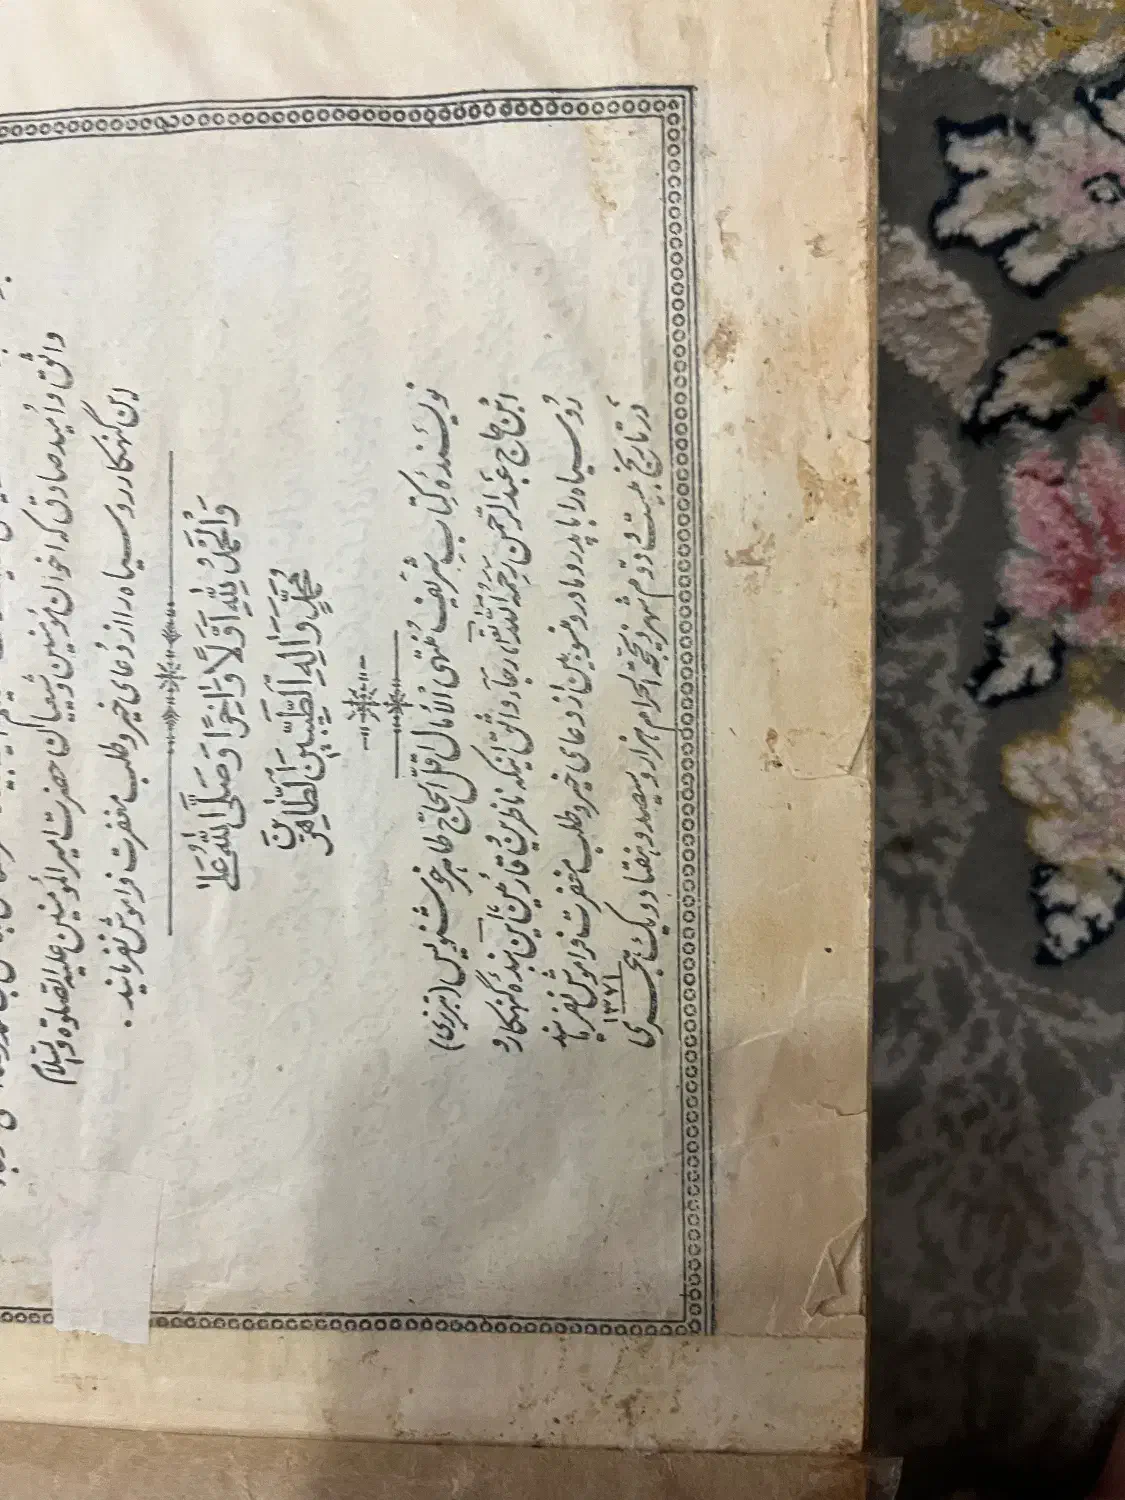 واثق و امید صادق که اخوان مؤمنین و شیعیان حضرت امیرالمؤمنین علیه الصلوة والسلام
این گنهکار روسیاه را از دعای خیر و طلب مغفرت فراموش نفرمایند.
وَالْحَمْدُ لِلّٰهِ اَوَّلًا وَاٰخِرًا وَصَلَّی اللّٰهُ عَلٰی
مُحَمَّدٍ وَاٰلِهِ الطَّیِّبِینَ الطَّاهِرِینَ
نویسنده کتاب شریف منتهی الامال اقل الحاج طاهر خوشنویس (تبریزی)
ابن حاج عبدالرحمن رحمه الله رجاء واثق اینکه ناظرین و قارئین این بنده گنهکار و
روسیاه را با پدر و مادر و منسوبین از دعای خیر و طلب مغفرت فراموش نفرمایند
در تاریخ بیست و دوم شهر ذیحجة الحرام هزار و سیصد و هفتاد و یک هجری
۱۳۷۱